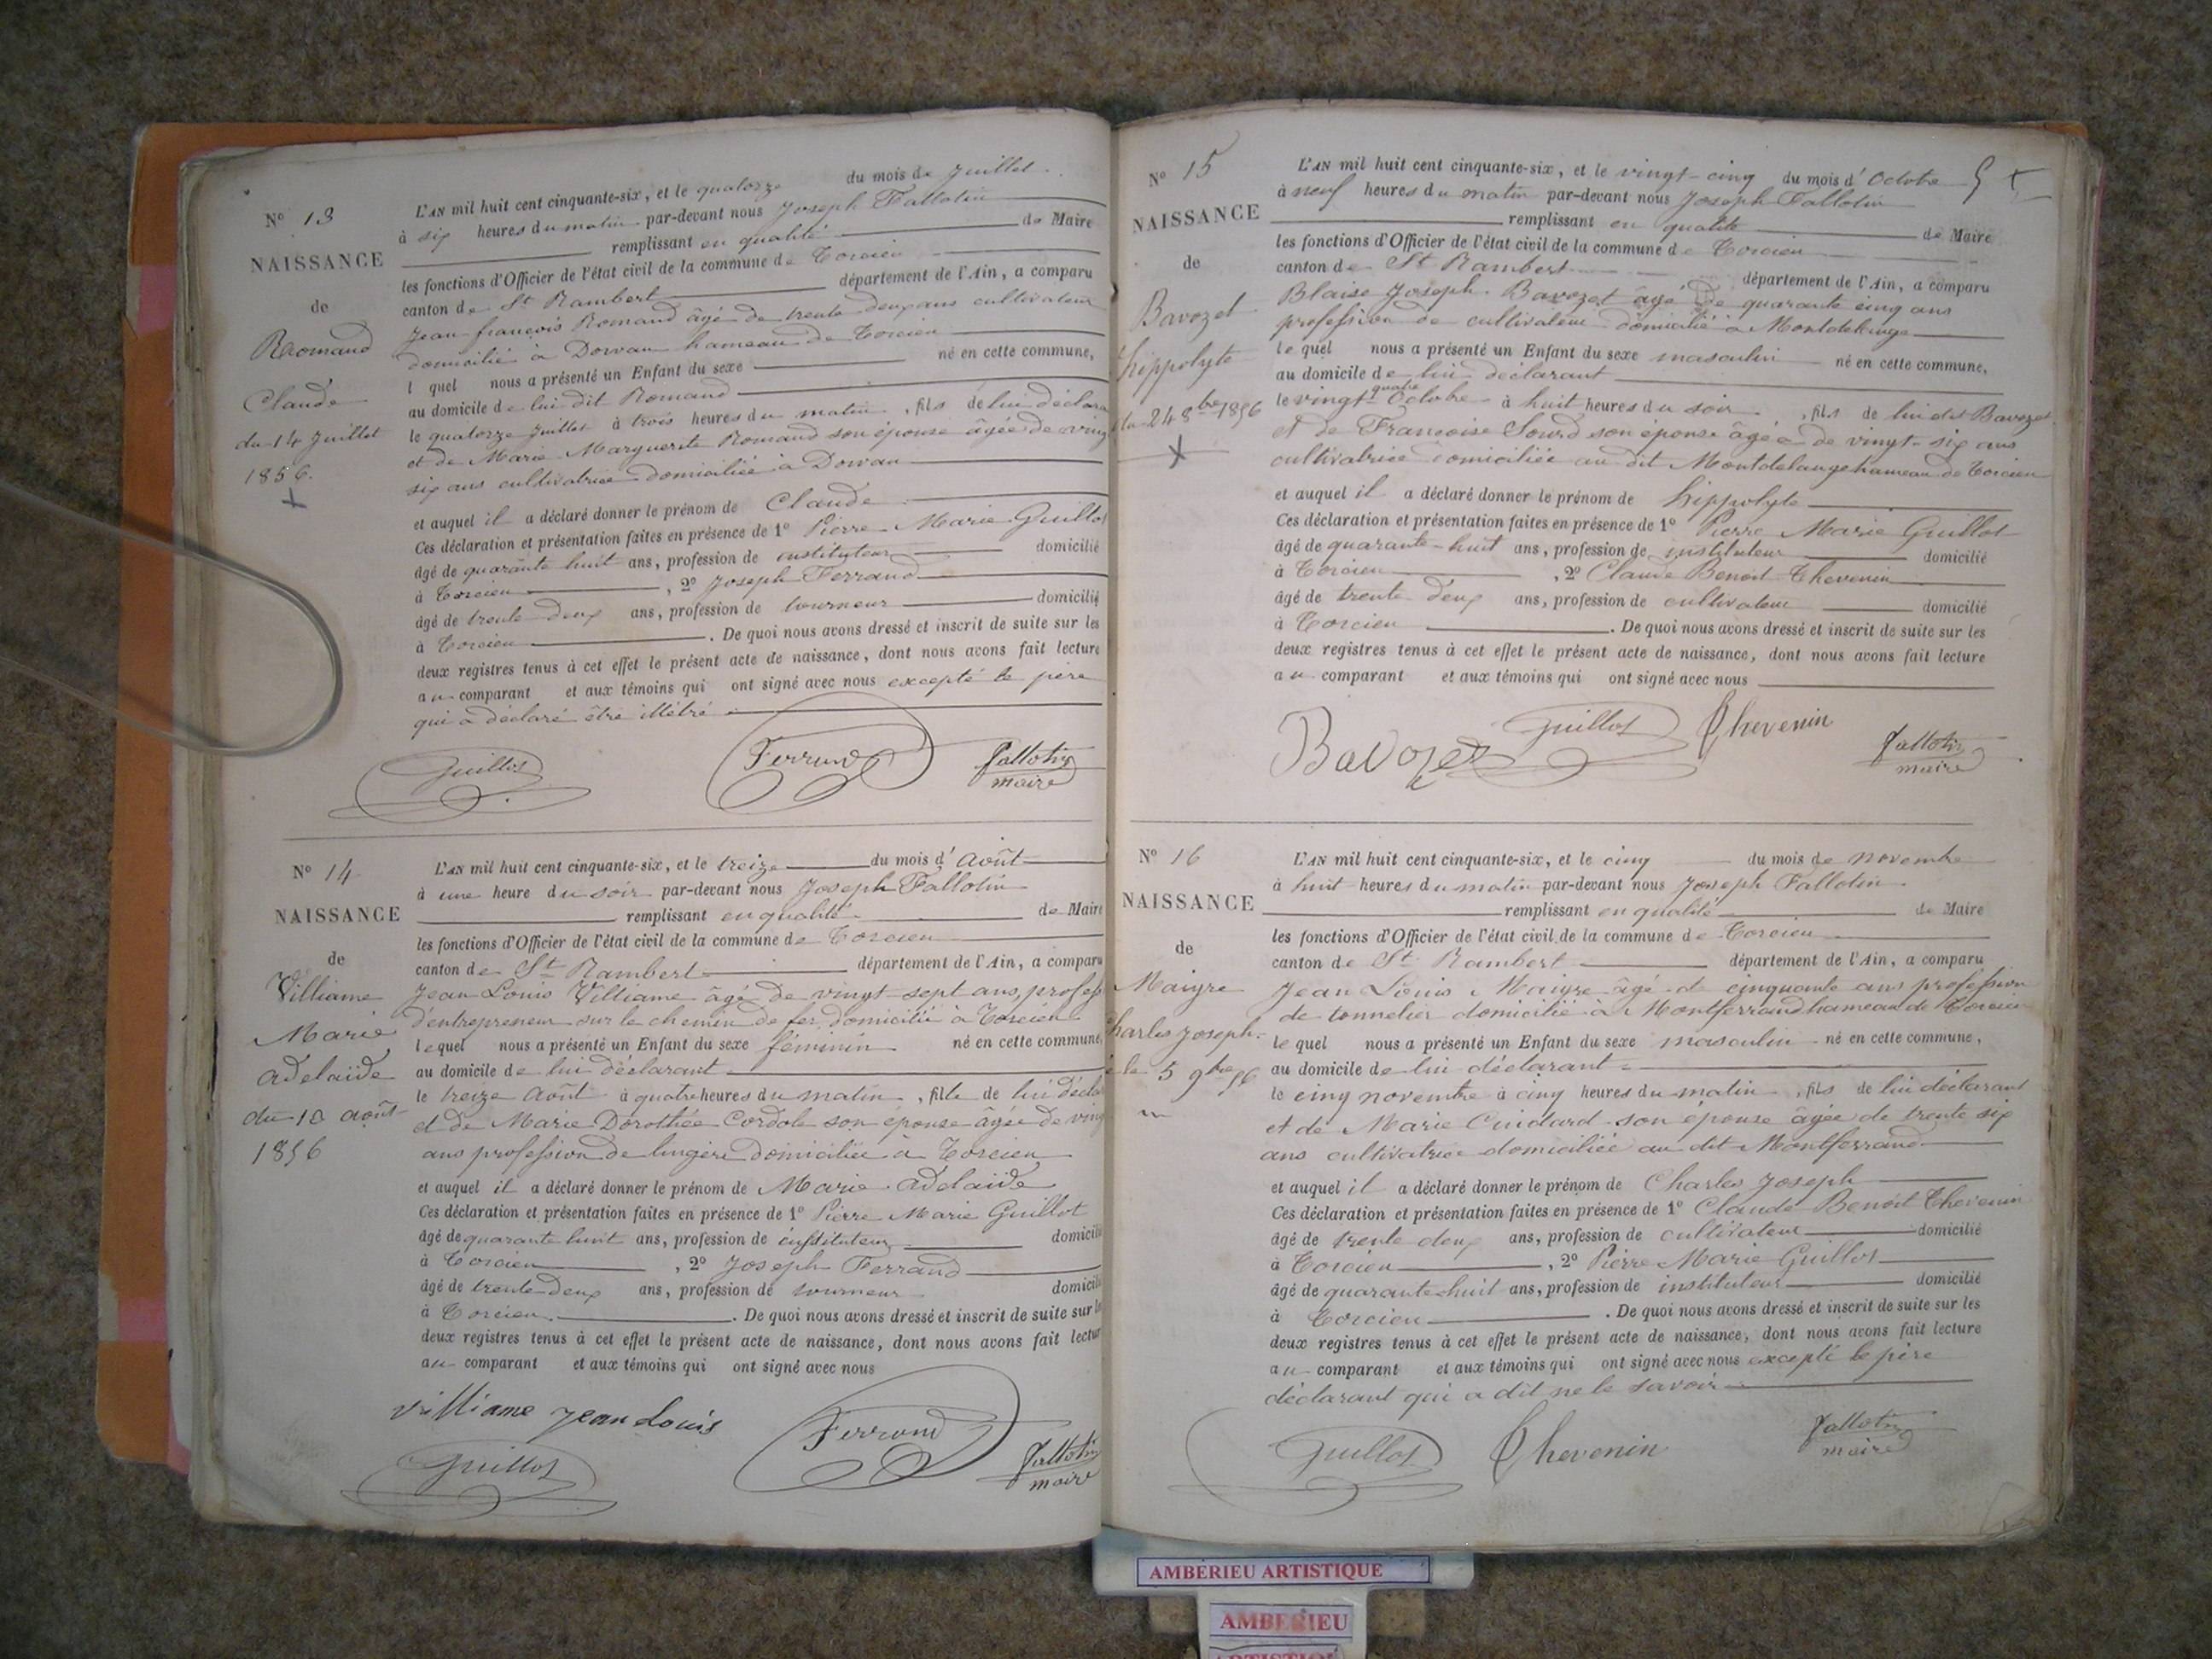 N° 13
NAISSANCE
de
Romand
Claude
du 14 Juillet
1856.
L'AN mil huit cent cinquante-six, et le quatorze du mois de Juillet
à six heures du matin par-devant nous Joseph Fallotin
remplissant en qualité de Maire
les fonctions d'Officier de l'état civil de la commune de Torcieu
canton de St Rambert département de l'Ain, a comparu
Jean-françois Romand âgé de trente deux ans cultivateur
domicilié à Dorvan hameau de Torcieu
l quel nous a présenté un Enfant du sexe né en cette commune,
au domicile de lui dit Romand
le quatorze Juillet à trois heures du matin, fils de lui déclara
et de Marie Marguerite Romand son épouse âgée de ving
six ans cultivatrice domiciliée à Dorvan
et auquel il a déclaré donner le prénom de Claude
Ces déclaration et présentation faites en présence de 1° Pierre Marie Guillot
âgé de quarante huit ans, profession de instituteur domicilié
à Torcieu, 2° Joseph Ferrand
âgé de trente deux ans, profession de tourneur domicilié
à Torcieu. De quoi nous avons dressé et inscrit de suite sur les
deux registres tenus à cet effet le présent acte de naissance, dont nous avons fait lecture
au comparant et aux témoins qui ont signé avec nous excepté le père
qui a déclaré être illétré
Guillot Ferrand fallotin
maire
N° 14
NAISSANCE
de
Villiame
Marie
adelaïde
du 13 août
1856
L'AN mil huit cent cinquante-six, et le treize du mois d'Août
à une heure du soir par-devant nous Joseph Fallotin
remplissant en qualité de Maire
les fonctions d'Officier de l'état civil de la commune de Torcieu
canton de St Rambert département de l'Ain, a comparu
Jean Louis Villiame âgé de vingt-sept ans, profess
d'entrepreneur sur le chemin de fer domicilié à Torcieu
lequel nous a présenté un Enfant du sexe féminin né en cette commune,
au domicile de lui déclarant
le treize Août à quatre heures du matin, fille de lui décla
et de Marie Dorothée Cordole son épouse âgée de ving
ans profession de lingère domiciliée à Torcieu
et auquel il a déclaré donner le prénom de Marie adelaïde
Ces déclaration et présentation faites en présence de 1° Pierre Marie Guillot
âgé de quarante huit ans, profession de instituteur domicilié
à Torcieu, 2° Joseph Ferrand
âgé de trente deux ans, profession de tourneur domicilié
à Torcieu. De quoi nous avons dressé et inscrit de suite sur les
deux registres tenus à cet effet le présent acte de naissance, dont nous avons fait lectur
au comparant et aux témoins qui ont signé avec nous
villiame jean louis Ferrand
Guillot fallotin
maire
N° 15
NAISSANCE
de
Bavozet
hippolyte
du 24 8bre 1856
L'AN mil huit cent cinquante-six, et le vingt-cinq du mois d'Octobre 5
à neuf heures du matin par-devant nous Joseph Fallotin
remplissant en qualité de Maire
les fonctions d'Officier de l'état civil de la commune de Torcieu
canton de St Rambert département de l'Ain, a comparu
Blaise Joseph Bavozet âgé de quarante cinq ans
profession de cultivateur domicilié à Montdelange
le quel nous a présenté un Enfant du sexe masculin né en cette commune,
au domicile de lui déclarant
le vingt quatre Octobre à huit heures du soir, fils de lui dit Bavozet
et de Françoise Sourd son épouse âgée de vingt-six ans
cultivatrice domiciliée au dit Montdelange hameau de Torcieu
et auquel il a déclaré donner le prénom de hippolyte
Ces déclaration et présentation faites en présence de 1° Pierre Marie Guillot
âgé de quarante-huit ans, profession de instituteur domicilié
à Torcieu, 2° Claude Benoit Thevenin
âgé de trente deux ans, profession de cultivateur domicilié
à Torcieu. De quoi nous avons dressé et inscrit de suite sur les
deux registres tenus à cet effet le présent acte de naissance, dont nous avons fait lecture
au comparant et aux témoins qui ont signé avec nous
Bavozet Guillot Thevenin fallotin
maire
N° 16
NAISSANCE
de
Maigre
Charles Joseph
le 5 9bre 56
L'AN mil huit cent cinquante-six, et le cinq du mois de novembre
à huit heures du matin par-devant nous Joseph Fallotin
remplissant en qualité de Maire
les fonctions d'Officier de l'état civil de la commune de Torcieu
canton de St Rambert département de l'Ain, a comparu
Jean Louis Maigre âgé de cinquante ans profession
de tonnelier domicilié à Montferrand hameau de Torcieu
le quel nous a présenté un Enfant du sexe masculin né en cette commune,
au domicile de lui déclarant
le cinq novembre à cinq heures du matin, fils de lui déclarant
et de Marie Cuidard son épouse âgée de trente six
ans cultivatrice domiciliée au dit Montferrand
et auquel il a déclaré donner le prénom de Charles Joseph
Ces déclaration et présentation faites en présence de 1° Claude Benoit Thevenin
âgé de trente deux ans, profession de cultivateur domicilié
à Torcieu, 2° Pierre Marie Guillot
âgé de quarante-huit ans, profession de instituteur domicilié
à Torcieu. De quoi nous avons dressé et inscrit de suite sur les
deux registres tenus à cet effet le présent acte de naissance, dont nous avons fait lecture
au comparant et aux témoins qui ont signé avec nous excepté le père
déclarant qui a dit ne le savoir
Guillot Thevenin fallotin
maire
AMBERIEU ARTISTIQUE
AMBERIEU
ARTISTIQUE